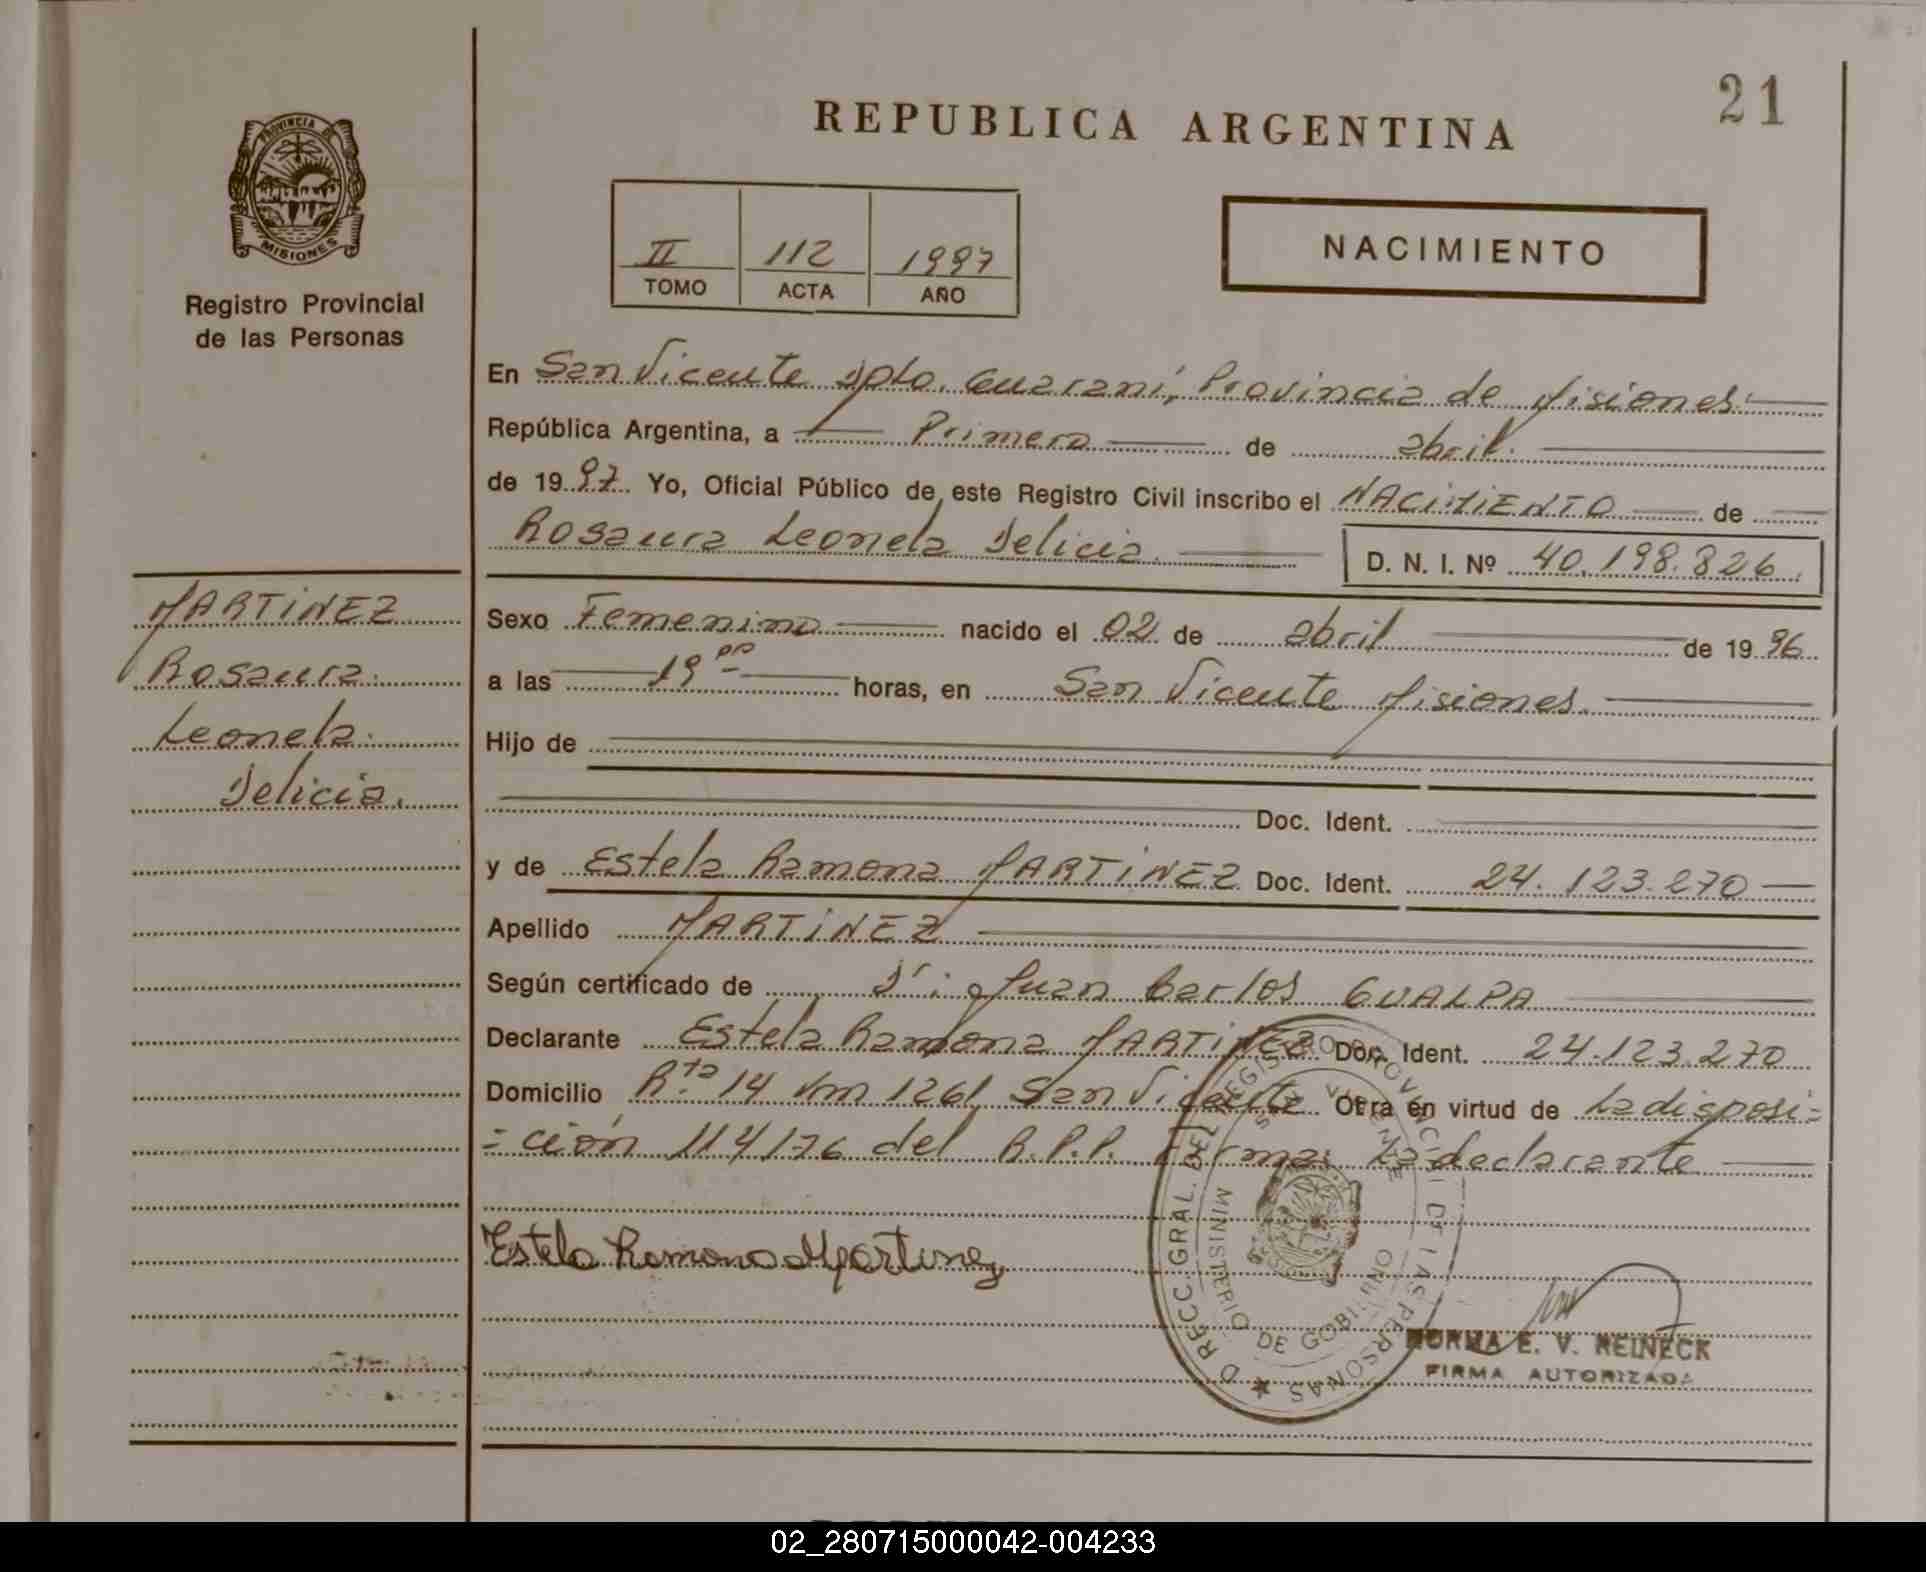 21
REPUBLICA ARGENTINA
PROVINCIA DE
MISIONES
Registro Provincial
de las Personas
II 112 1997
TOMO ACTA AÑO
NACIMIENTO
En San Vicente Dpto. Guaraní, Provincia de Misiones.
República Argentina, a Primero de abril.
de 1997. Yo, Oficial Público de este Registro Civil inscribo el NACIMIENTO de
Rosaura Leonela Delicia. D. N. I. Nº 40.198.826.
MARTINEZ
Rosaura.
Leonela.
Delicia.
Sexo Femenino nacido el 02 de abril de 1996
a las 19 00 horas, en San Vicente Misiones.
Hijo de
Doc. Ident.
y de Estela Ramona MARTINEZ Doc. Ident. 24.123.270
Apellido MARTINEZ
Según certificado de Juan Carlos GUALPA
Declarante Estela Ramona MARTINEZ Doc. Ident. 24.123.270
Domicilio Rta 14 km 1261 San Vicente Obra en virtud de La disposi=
=ción 114/76 del R.P.P. Firma: La declarante
Estela Ramona Martinez
DIRECC. GRAL. DEL REGISTRO PROVINCIAL DE LAS PERSONAS
SAN VICENTE
MINISTERIO DE GOBIERNO
NORMA E. V. REINECK
FIRMA AUTORIZADA
02_280715000042-004233